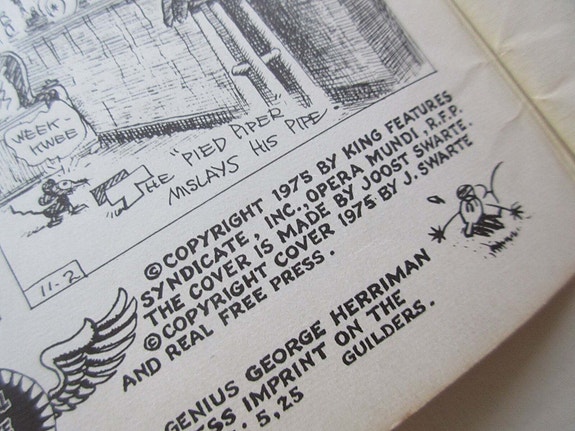 WEEK-
KWEE
THE "PIED PIPER"
MISLAYS HIS PIPE
11-2
©COPYRIGHT 1975 BY KING FEATURES
SYNDICATE, INC., OPERA MUNDI, R.F.P.
THE COVER IS MADE BY JOOST SWARTE.
©COPYRIGHT COVER 1975 BY J. SWARTE
AND REAL FREE PRESS.
GENIUS GEORGE HERRIMAN
ESS IMPRINT ON THE
5,25 GUILDERS.